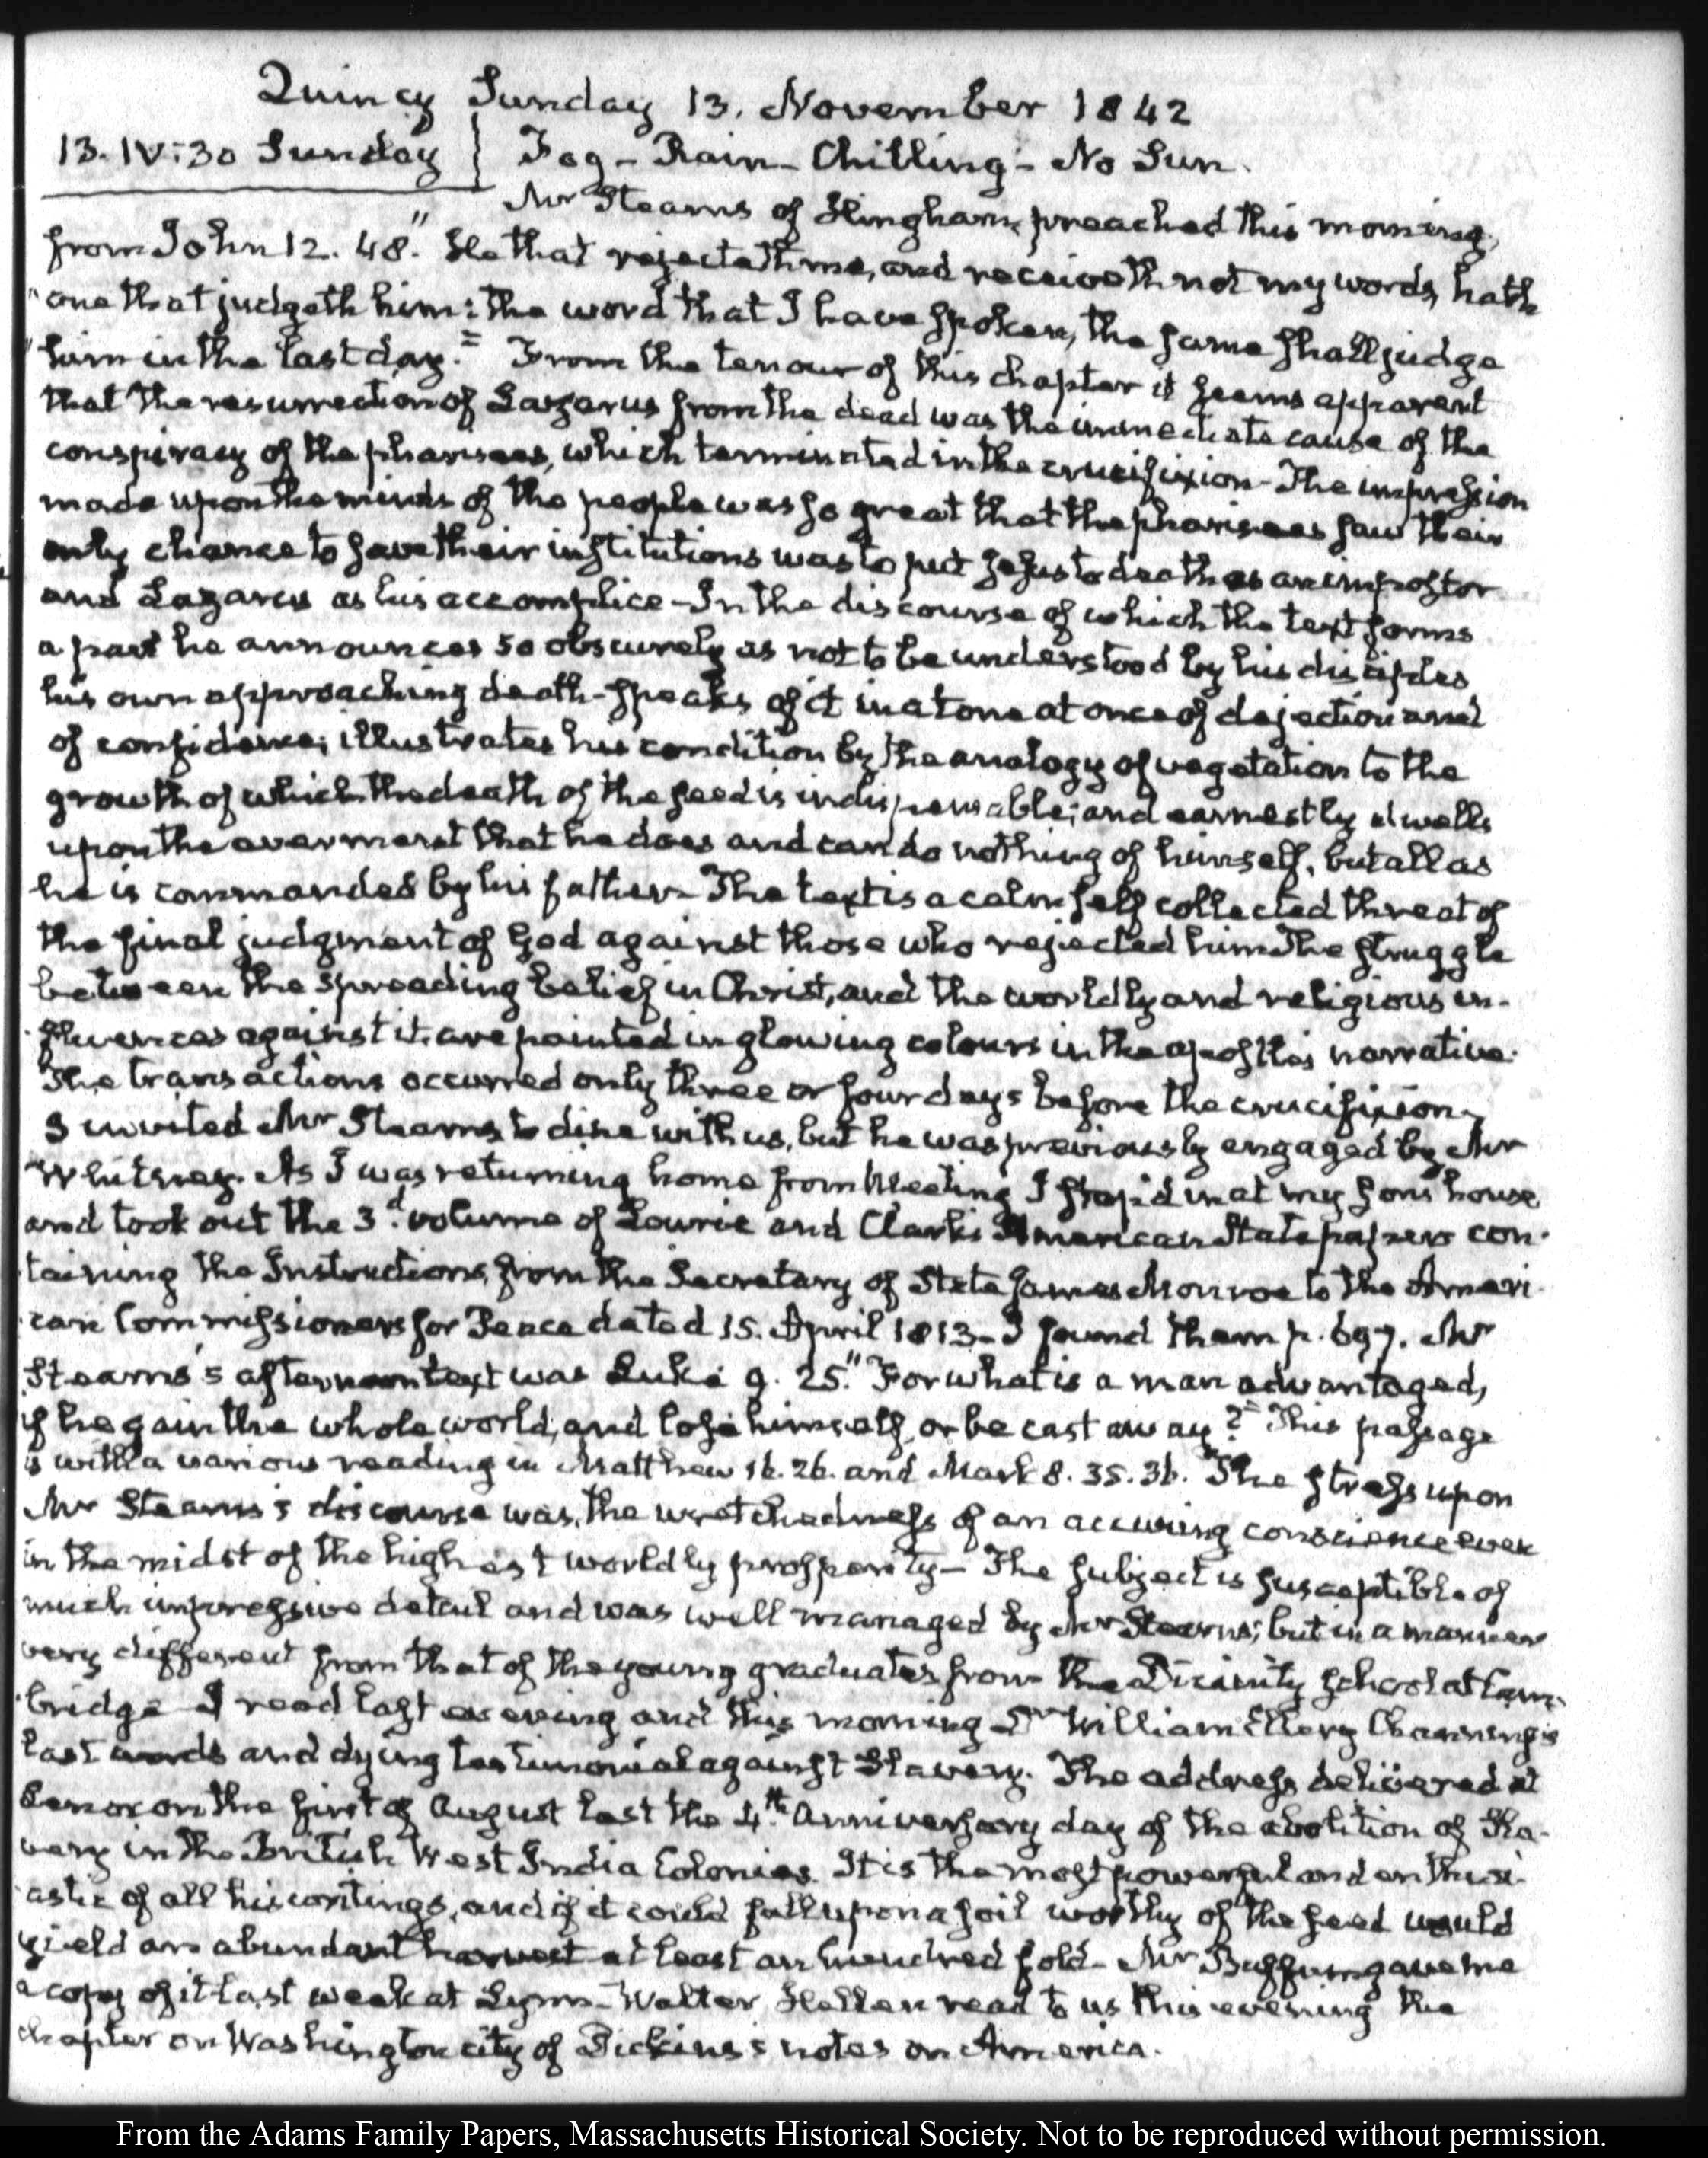 Quincy Sunday 13. November 1842
13. IV:30 Sunday } Fog - Rain - Chilling - No Sun.
Mr Stearns of Hingham, preached this morning,
from John 12. 48." He that rejecteth me, and receiveth not my words, hath
"one that judgeth him: the word that I have spoken, the same shall judge
"him in the last day." From the tenour of this chapter it seems apparent
that the resurrection of Lazarus from the dead was the immediate cause of the
conspiracy of the pharisees, which terminated in the crucifixion - The impression
made upon the minds of the people was so great that the pharisees saw their
only chance to save their institutions was to put Jesus to death as an impostor
and Lazarus as his accomplice - In the discourse of which the text forms
a part he announces so obscurely as not to be understood by his disciples
his own approaching death - speaks of it in a tone at once of dejection and
of confidence; illustrates his condition by the analogy of vegetation to the
growth of which the death of the seed is indispensable; and earnestly dwells
upon the averment that he does and can do nothing of himself, but all as
he is commanded by his father - The text is a calm self collected threat of
the final judgment of God against those who rejected him The struggle
between the spreading belief in Christ, and the worldly and religious in-
fluences against it are painted in glowing colours in the apostles narrative.
The transactions occurred only three or four days before the crucifixion -
I invited Mr Stearns to dine with us, but he was previously engaged by Mr
Whitney. As I was returning home from Meeting I stop'd in at my sons house
and took out the 3d. volume of Lowrie and Clarke's American State papers con-
taining the Instructions from the Secretary of State James Monroe to the Ameri-
can Commissioners for Peace dated 15. April 1813 - I found them p. 697. Mr
Stearns's afternoon text was Luke 9. 25." For what is a man advantaged,
if he gain the whole world, and lose himself, or be cast away?" This passage
is with a various reading in Matthew 16. 26. and Mark 8. 35. 36. The stress upon
Mr Stearns's discourse was, the wretchedness of an accusing conscience even
in the midst of the highest worldly prosperity - The subject is susceptible of
much impressive detail and was well managed by Mr Stearns; but in a manner
very different from that of the young graduates from the Divinity school at Cam-
bridge I read last evening and this morning Dr William Ellery Channing's
last words and dying testimonial against Slavery. The address delivered at
Lenox on the first of August last the 4th. anniversary day of the abolition of Sla-
very in the British West India Colonies. It is the most powerful and enthusi-
astic of all his writings, and if it could fall upon a soil worthy of the seed would
yield an abundant harvest at least an hundred fold - Mr Buffum gave me
a copy of it last week at Lynn - Walter Hellen read to us this evening the
chapter on Washington city of Dickins's notes on America.
From the Adams Family Papers, Massachusetts Historical Society. Not to be reproduced without permission.